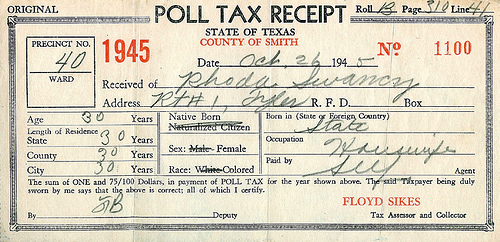 ORIGINAL POLL TAX RECEIPT Roll B Page 310 Line 41
STATE OF TEXAS
COUNTY OF SMITH
PRECINCT NO. 40 WARD
1945
No 1100
Date Oct. 26 1945
Received of Rhoda Swancy
Address Rt # 1, Tyler R. F. D. Box
Age 30 Years
Length of Residence
State 30 Years
County 30 Years
City 30 Years
Native Born
Naturalized Citizen
Sex: Male-Female
Race: White-Colored
Born in (State or Foreign Country)
State
Occupation Housewife
Paid by Self Agent
The sum of ONE and 75/100 Dollars, in payment of POLL TAX for the year shown above. The said Taxpayer being duly
sworn by me says that the above is correct; all of which I certify.
FLOYD SIKES
By Deputy Tax Assessor and Collector